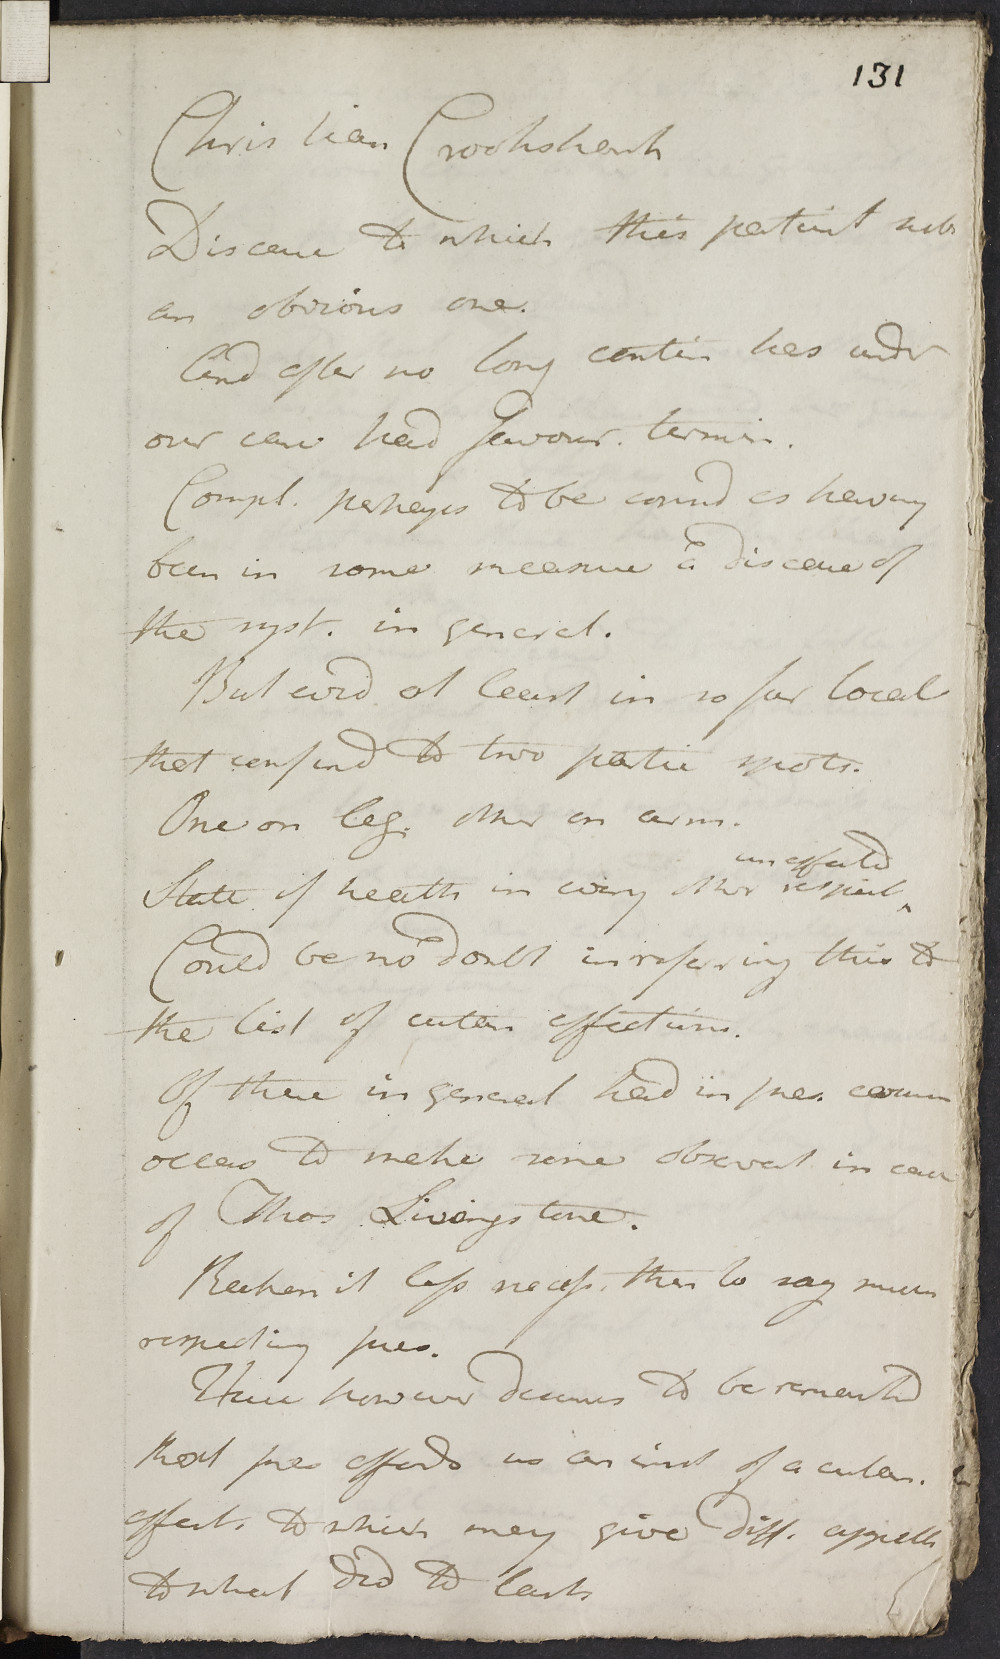 131
Christian Crookshank
Disease to which this patient sub
an obvious one.
And after no long contin has undr
our care had favour. termin.
Compl. perhaps to be consid as having
been in some measure a disease of
the syst. in general.
But evid at least in so far local
that confind to two partic spots.
One on leg. other on arm.
unaffected
State of health in every other respect ^
Could be no doubt in referring this to
the list of cutan affections.
Of these in general had in pres. course
occas to make some observat in case
of Thos Livingstone.
Reckon it less necess. then to say much
respecting pres.
Here however deserves to be remarkd
that pres affords us an inst of a cutan.
affect. to which may give diff. appella
to what did to last